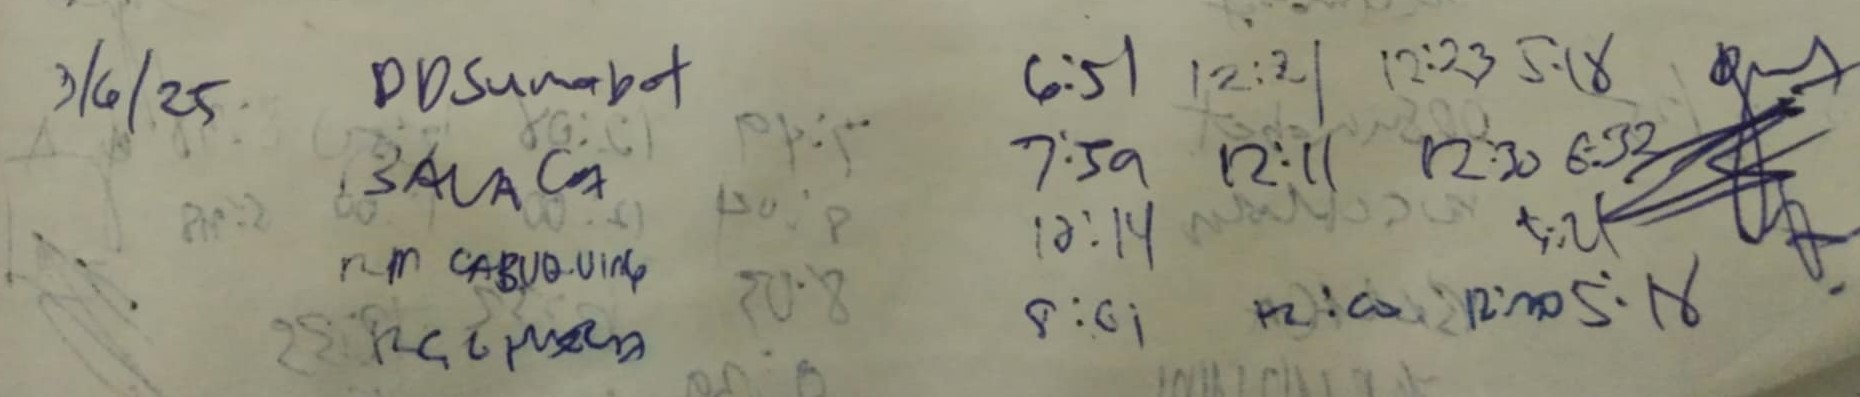 3/6/25 DDSumabot 6:51 12:21 12:23 5:18
BALACA 7:59 12:11 12:30 6:32
CABUQUING 12:14 5:21
8:01 12:00 12:30 5:18